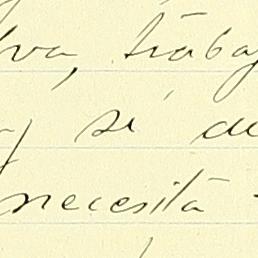 va, trabaj
si de
necesita